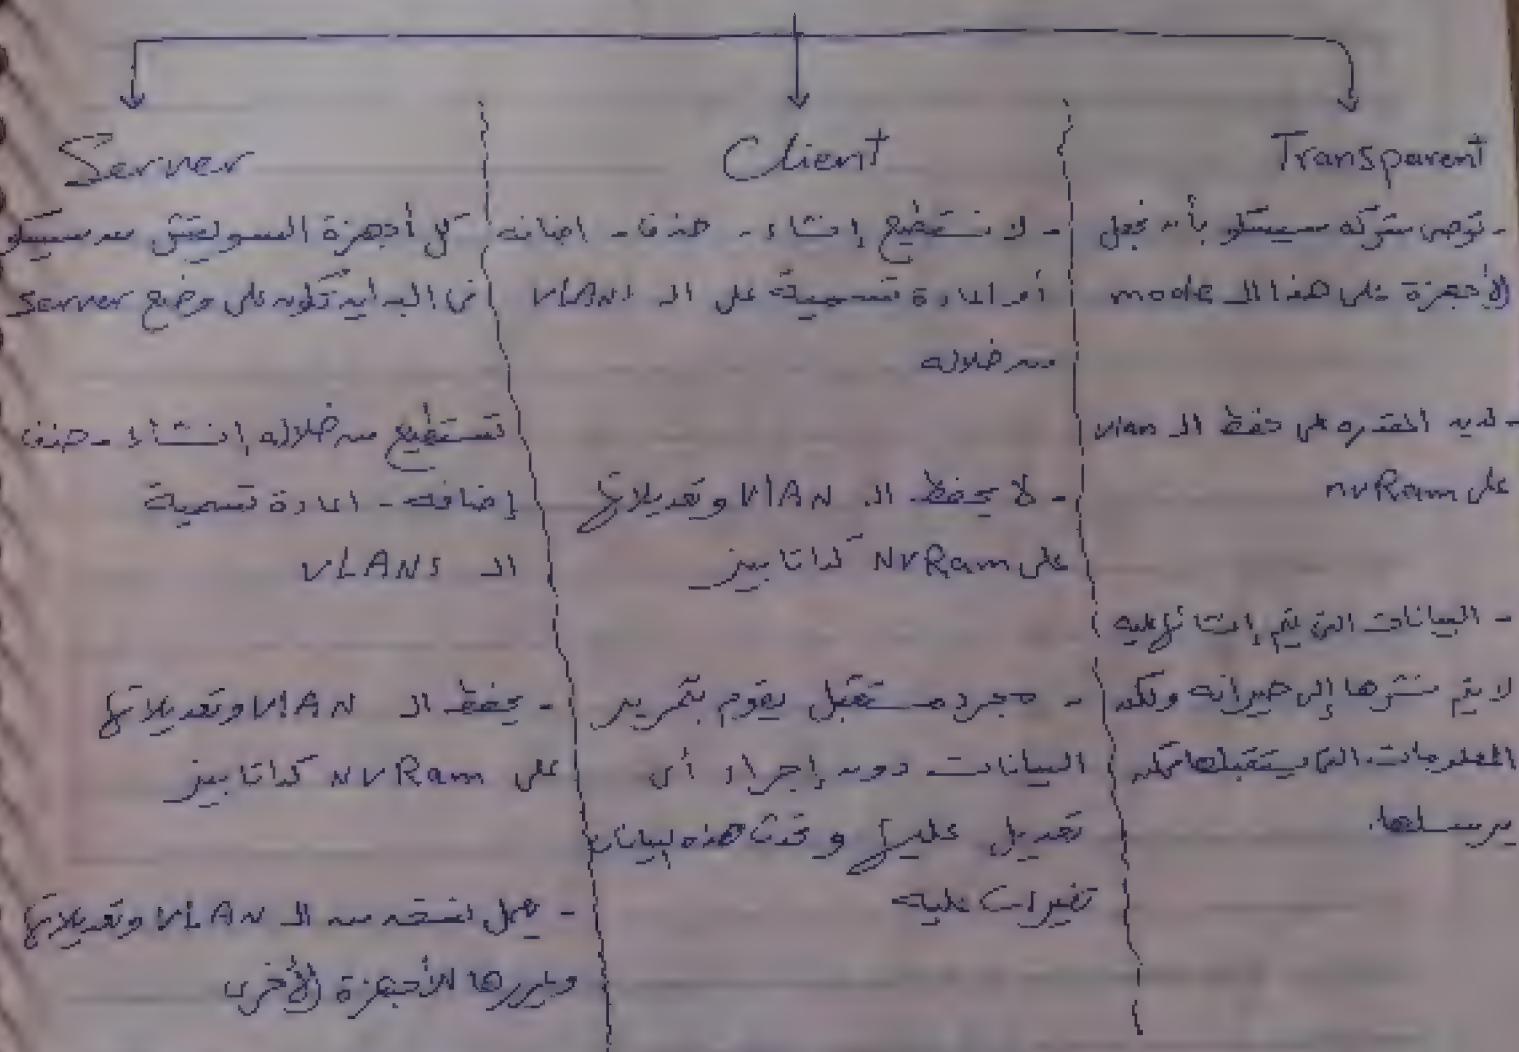 Server
كل أجهزة السويتش من سيسكو
في البداية تكون على وضع server
تستطيع من خلاله إنشاء - حذف
إضافه - اعادة تسمية
الـ VLANs
- يحفظ الـ VlAN وتعديلاتها
على NVRam كداتا بيز
- يعمل نسخه من الـ VLAN وتعديلاتها
ويمررها للأجهزة الأخرى
Client
- لا نستطيع إنشاء - حذف - اضافه
أو اعادة تسمية على الـ VlANs
من خلاله
- لا يحفظ الـ VlAN وتعديلاتها
على NVRam كداتا بيز
- مجرد مستقبل يقوم بتمرير
البيانات دون إجراء أى
تعديل عليها و تحدث هذه البيانات
تغيرات عليه
Transparent
- توصى شركه سيسكو بأن نجعل
الأجهزة على هذا الـ mode
- لديه المقدره على حفظ الـ vlan
على nvRam
- البيانات التى يتم إنشائها عليه
لا يتم نشرها إلى جيرانه ولكن
المعلومات التى يستقبلها يمكن
يرسلها.